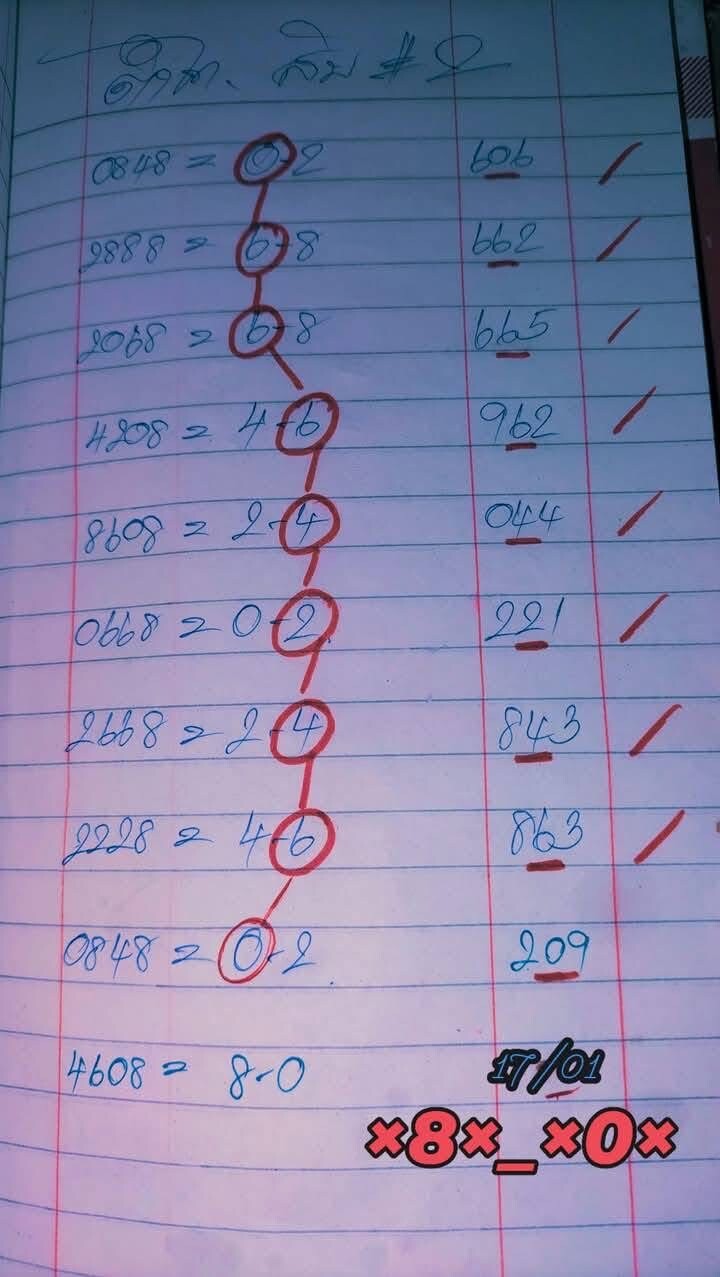 สิบ #2
0848 = 0-2 606
2888 = 6-8 662
2068 = 6-8 665
4208 = 4-6 962
8608 = 2-4 044
0668 = 0-2 221
2668 = 2-4 843
2228 = 4-6 863
0848 = 0-2 209
4608 = 8-0 17/01
×8×_×0×